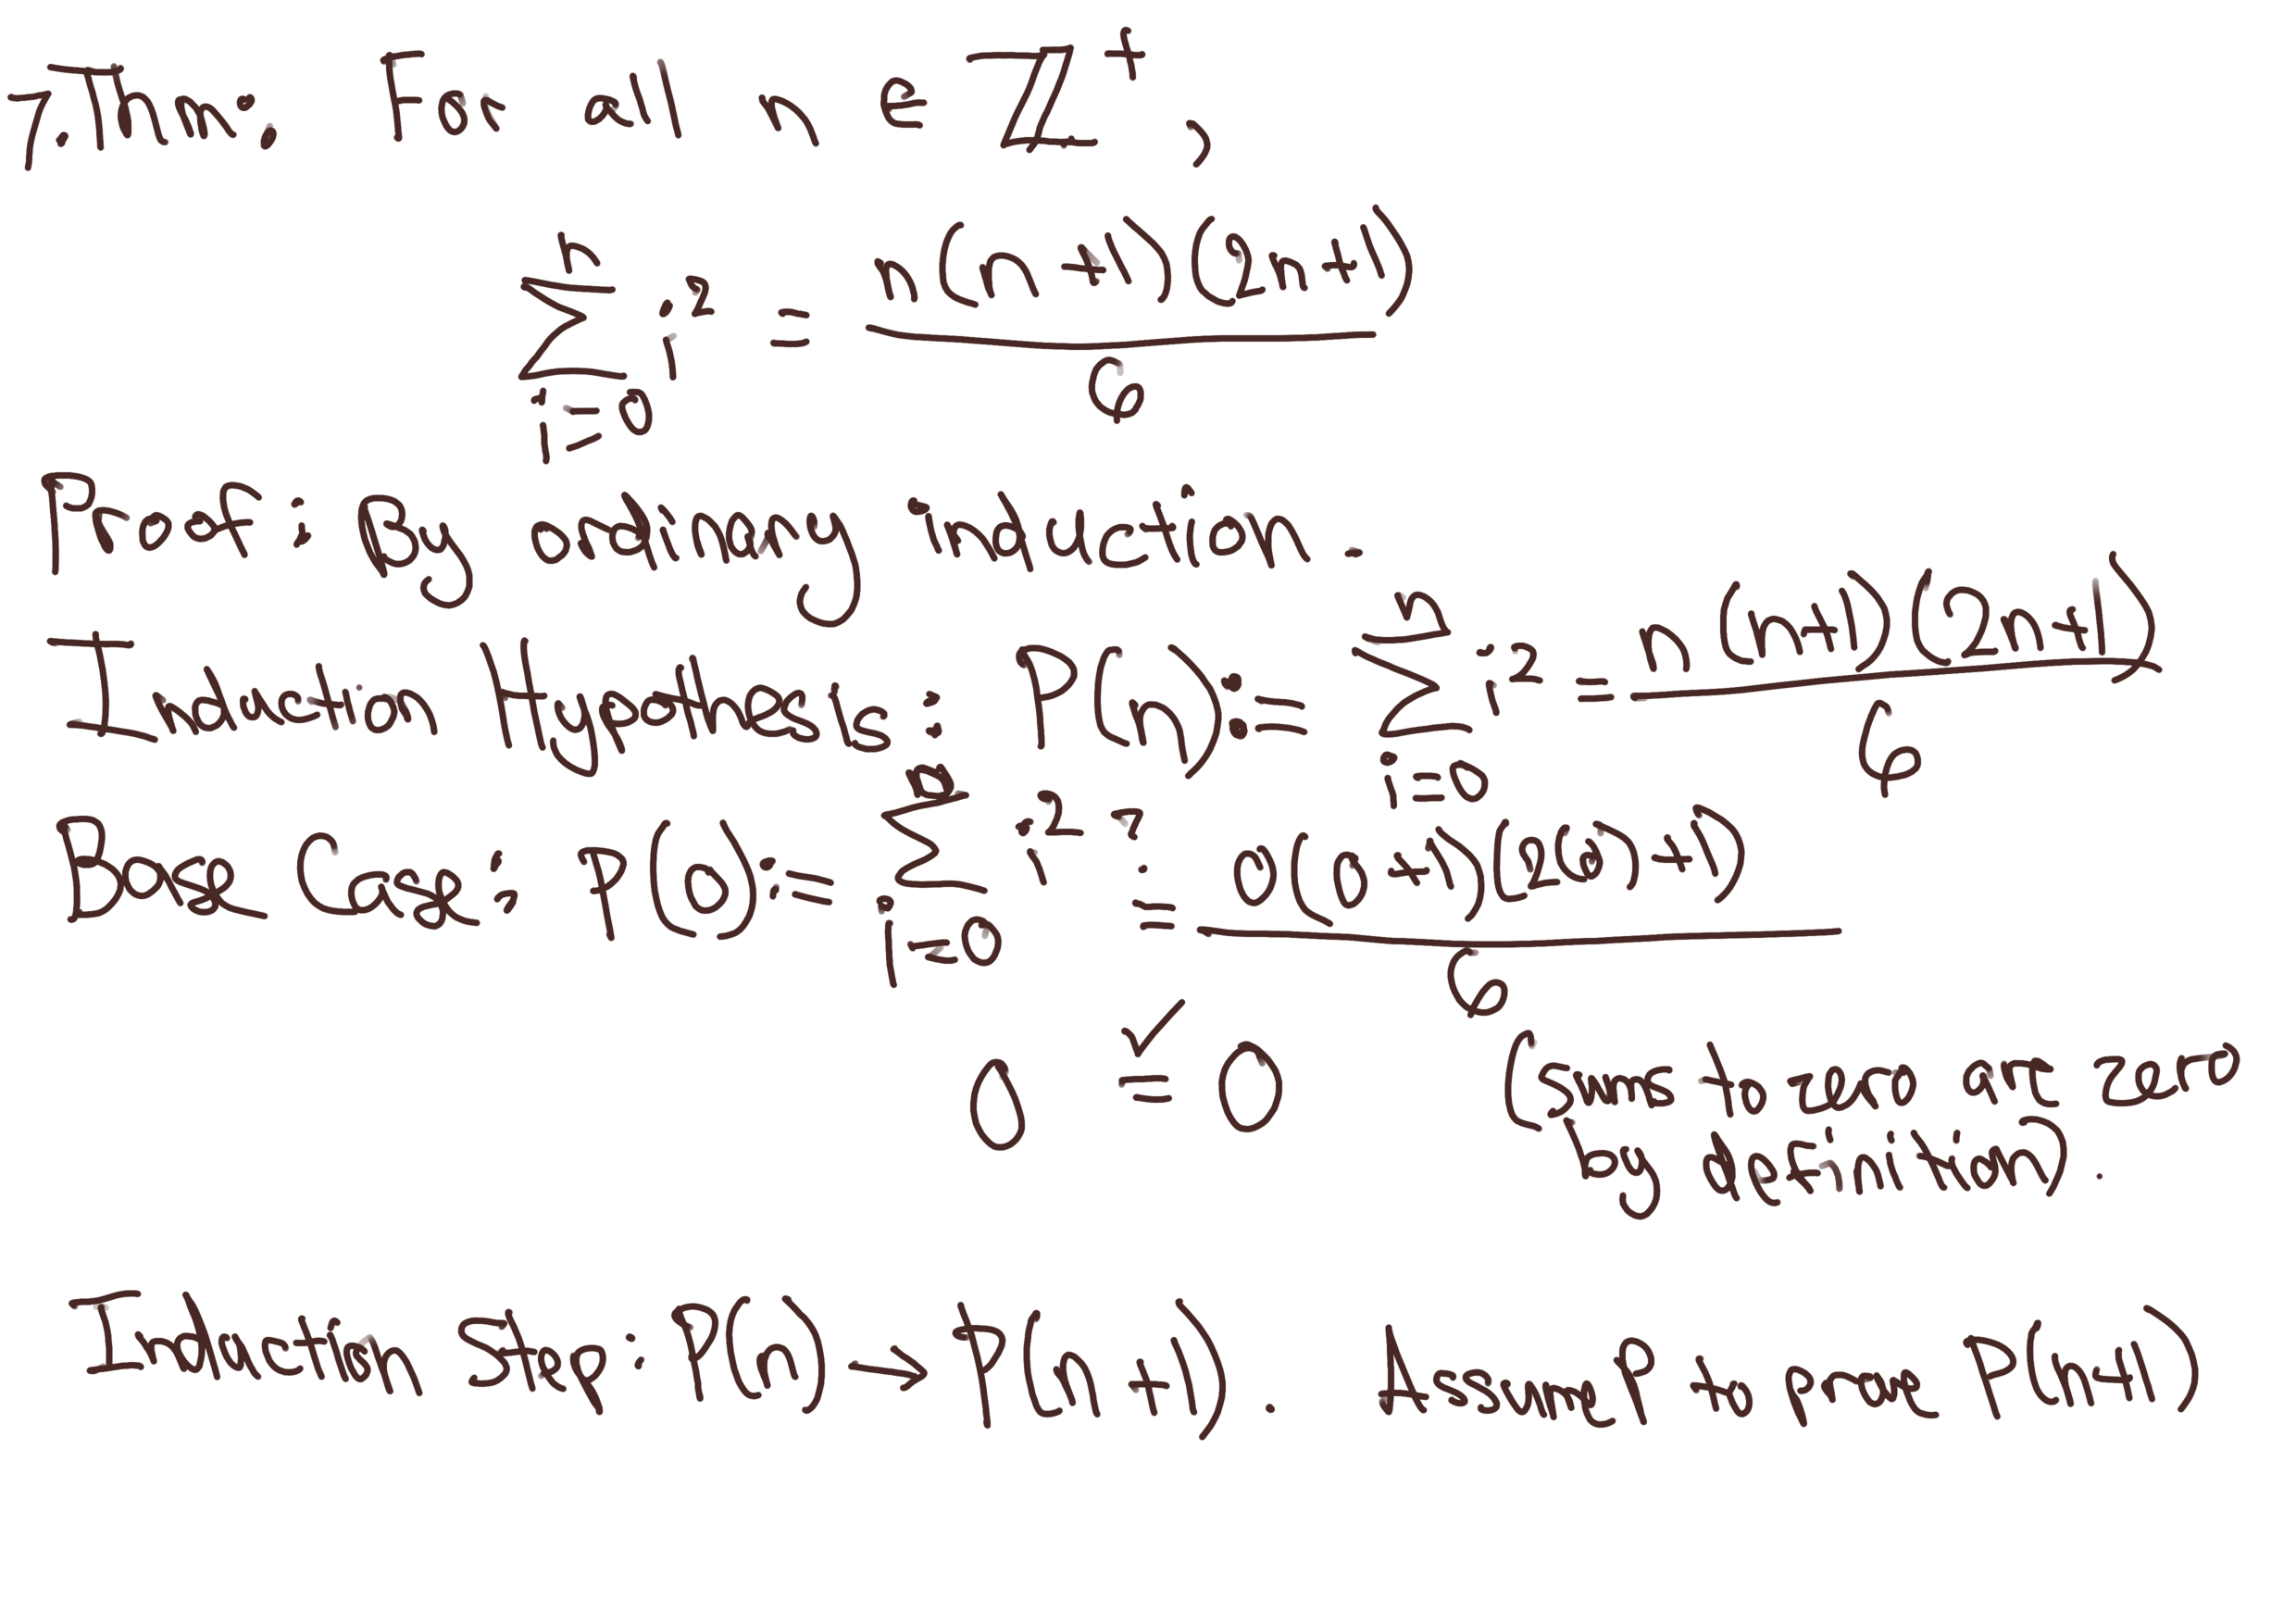 7. Thm: For all n ∈ ℤ⁺,
∑_{i=0}^{n} i² = n(n+1)(2n+1) / 6
Proof: By ordinary induction.
Induction Hypothesis: P(n) := ∑_{i=0}^{n} i² = n(n+1)(2n+1) / 6
Base Case: P(0) := ∑_{i=0}^{0} i² ?= 0(0+1)(2(0)+1) / 6
0 ✓= 0 (sums to zero are zero
by definition).
Induction Step: P(n) → P(n+1). Assume P to prove P(n+1)